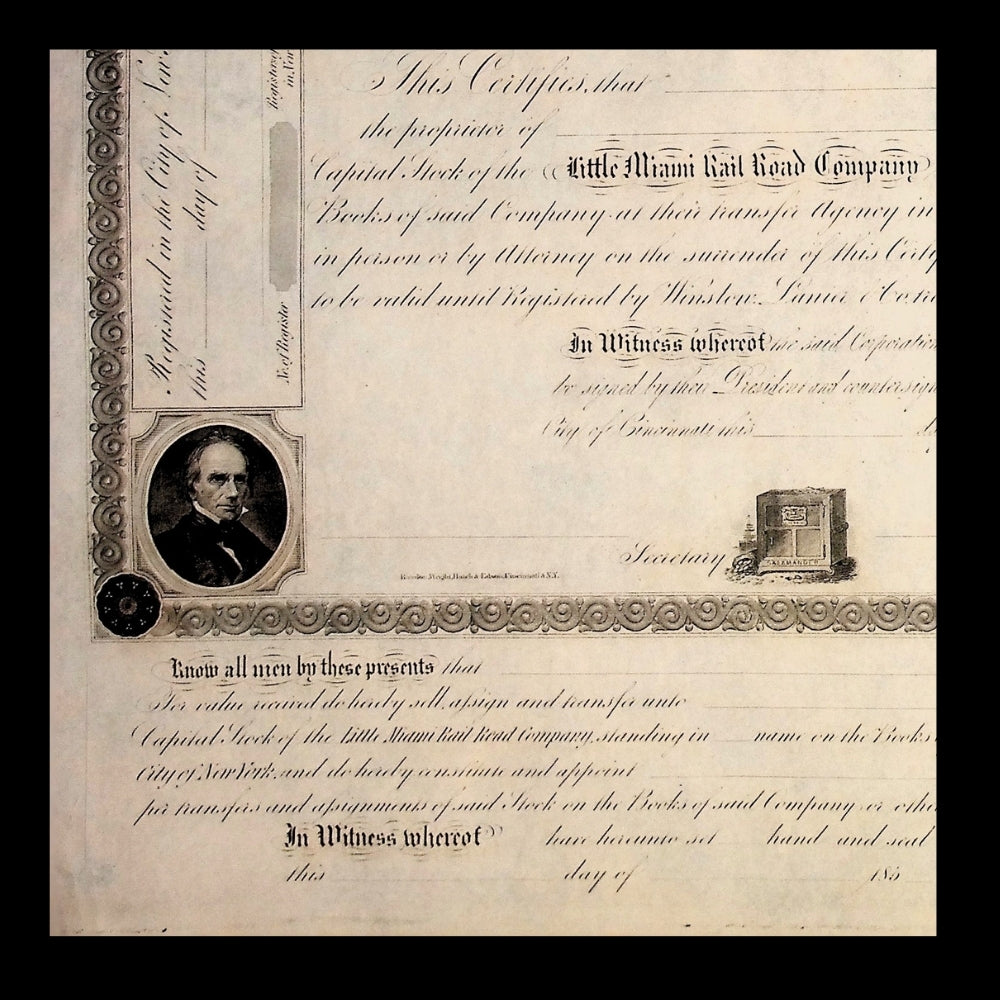 This Certifies, that
the proprietor of
Capital Stock of the Little Miami Rail Road Company
Books of said Company at their transfer Agency in
in person or by Attorney on the surrender of this
to be valid until Registered by Winslow, Lanier & Co.
In Witness whereof the said Corporation
be signed by their President and
City of Cincinnati this
Secretary
SALAMANDER
Registered in the City of
this day of
No. of Register
Know all men by these presents that
For value received do hereby sell, assign and transfer unto
Capital Stock of the Little Miami Rail Road Company, standing in name on the Books
City of New York, and do hereby constitute and appoint
per transfers and assignments of said Stock on the Books of said Company or
In Witness whereof have hereunto set hand and seal
this day of 185